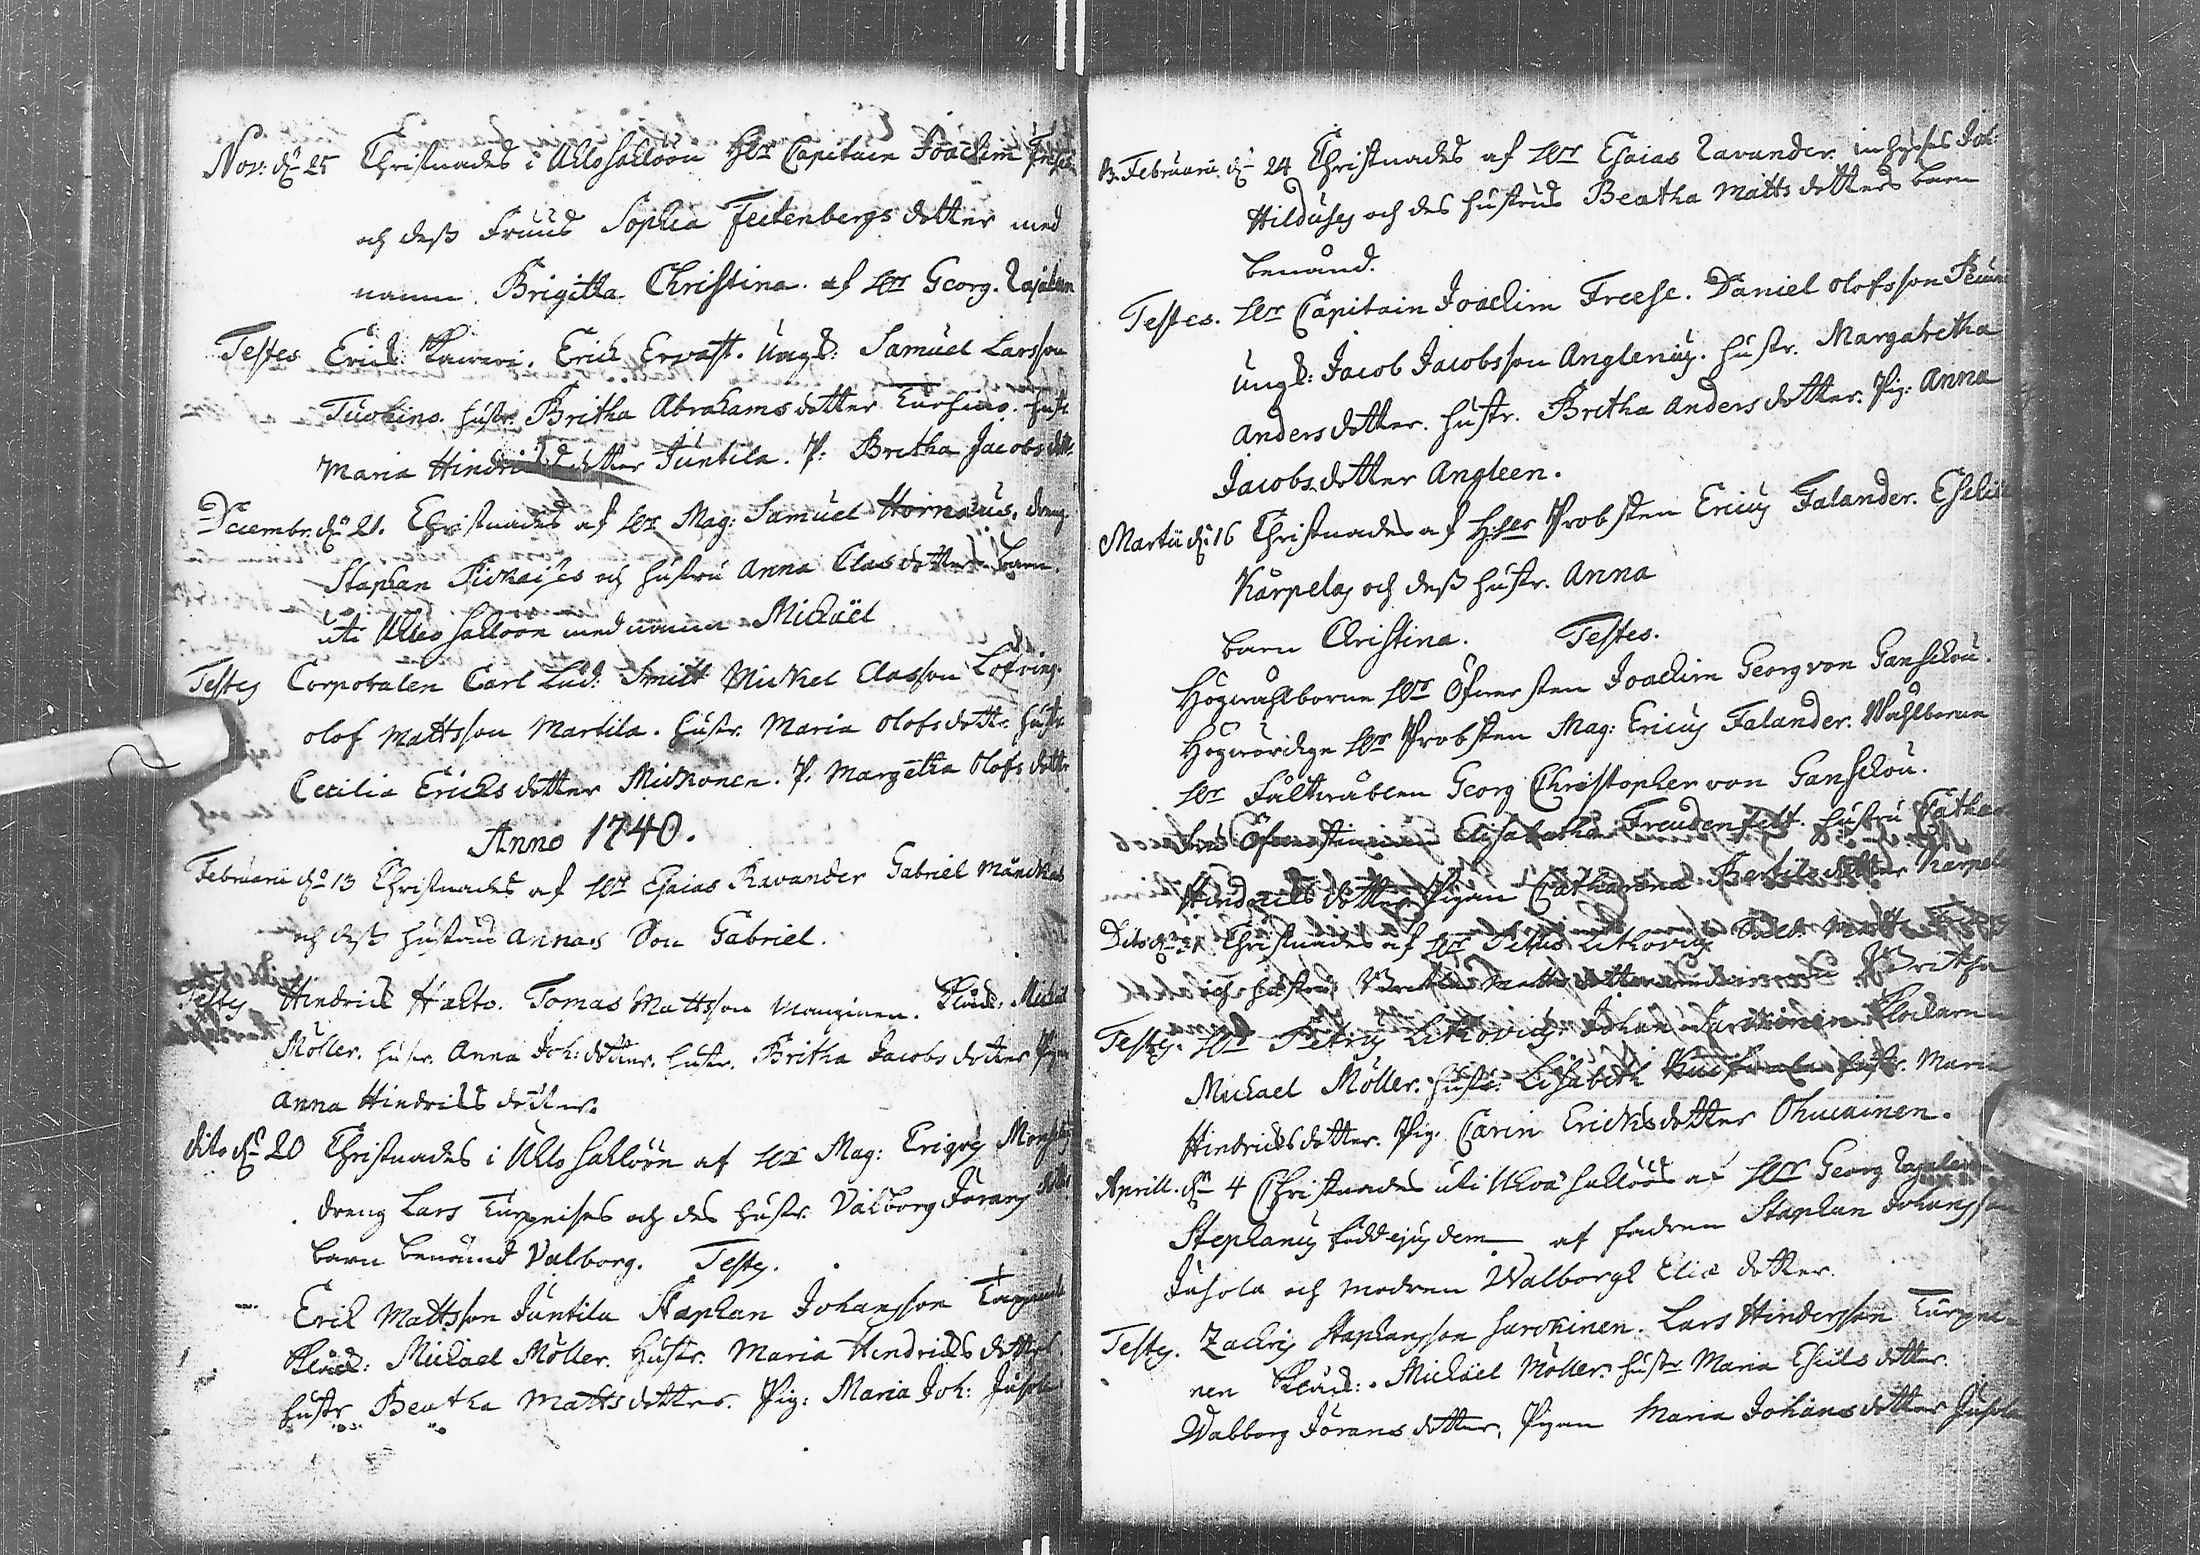 Nov: d. 25 Christnades i Ullo hallöön Hr Capitain Joachim Freses
och dess Fruus Sophia Feitenbergs dotter med
namn. Brigitta Christina. af Hr Georg.
Testes Erich Erich Ervast. Ungd: Samuel Larsson
hustr. Britha Abrahams dotter hustr.
Maria Hindrichs dotter Juntila. P: Britha Jacobs dott.
Decembr. d. 21. Christnades af Hr Mag: Samuel Hornæus, dreng
Staphan och hustru Anna Clas dotters barn.
uti Ullo halloön med namn Michaël
Testes Corporalen Carl Lud: Smitt Mickel Classon Löfving.
Olof Mattsson Martila. hustr. Maria Olofs dottr. hustr.
Cecilia Erichs dotter Mickonen. P. Margetha Olofs dotter
Anno 1740.
Februarii d. 13 Christnades af Hr Esaias Ravander Gabriel
och dess hustrus Annas Son Gabriel.
Testes Hindrich Halto. Tomas Mattsson Manninen. Michael
Möller. hustr. Anna Joh: dotter. hustr. Britha Jacobs dotter Pigan
Anna Hindrichs dotter.
dito d. 20 Christnades i Ullo hallöön af Hr Mag:
dreng Lars Turpeises och des hustr. Valborg Jörans dotters
barn benämd Valborg. Testes.
Erich Mattsson Juntila Staphan Johansson
Michael Möller. Hustr. Maria Hindrichs dotter
hustr Beatha Matts dotter. Pig: Maria Joh: Juhola
Februarii d. 24 Christnades af Hr Esaias Ravander inhyses Joh.
och des hustrus Beatha Matts dotters barn
benämd.
Testes. Hr Capitain Joachim Freese. Daniel Olofsson
Ungd: Jacob Jacobsson Anglenius. hustr. Margaretha
Anders dotter. hustr. Britha Anders dotter. Pig: Anna
Jacobs dotter Angleen.
Martii d. 16 Christnades af H: Hr Probsten Ericus Falander.
Karpelas och dess hustr. Anna
barn Christina. Testes.
Högwählborne Hr Öfwersten Joachim Georg von Ganschou.
Högwördige Hr Probsten Mag: Ericus Falander. Wählborne
Hr Georg Christopher von Ganschou.
Öfwerstinnan Elisabetha Freudenfelt. hustru Cathar.
Hindrichs dotter Pigan Catharina Bertils dotter Karpela
Dito d. 31 Christnades af Hr Petrus Lithovius Sold. Matts
och hustru Matts dotter Britha
Testes. Hr Petrus Lithovius. Johan Klockaren
Michael Möller. hustr: Lisabeth hustr. Maria
Hindrichs dotter. Pig. Carin Erichs dotter Ohucainen.
Aprill. d. 4 Christnades uti Uloå hallöös af Hr Georg
Stephanus född ejusdem af fadren Staphan Johansson
Juhola och modren Walborgh Eliæ dotter.
Testes. Zachris Staphansson Sarckinen. Lars Hindersson Turpei-
nen Michäel Möller. hustr Maria dotter.
Walborg Jörans dotter, Pigan Maria Johans dotter Juhola